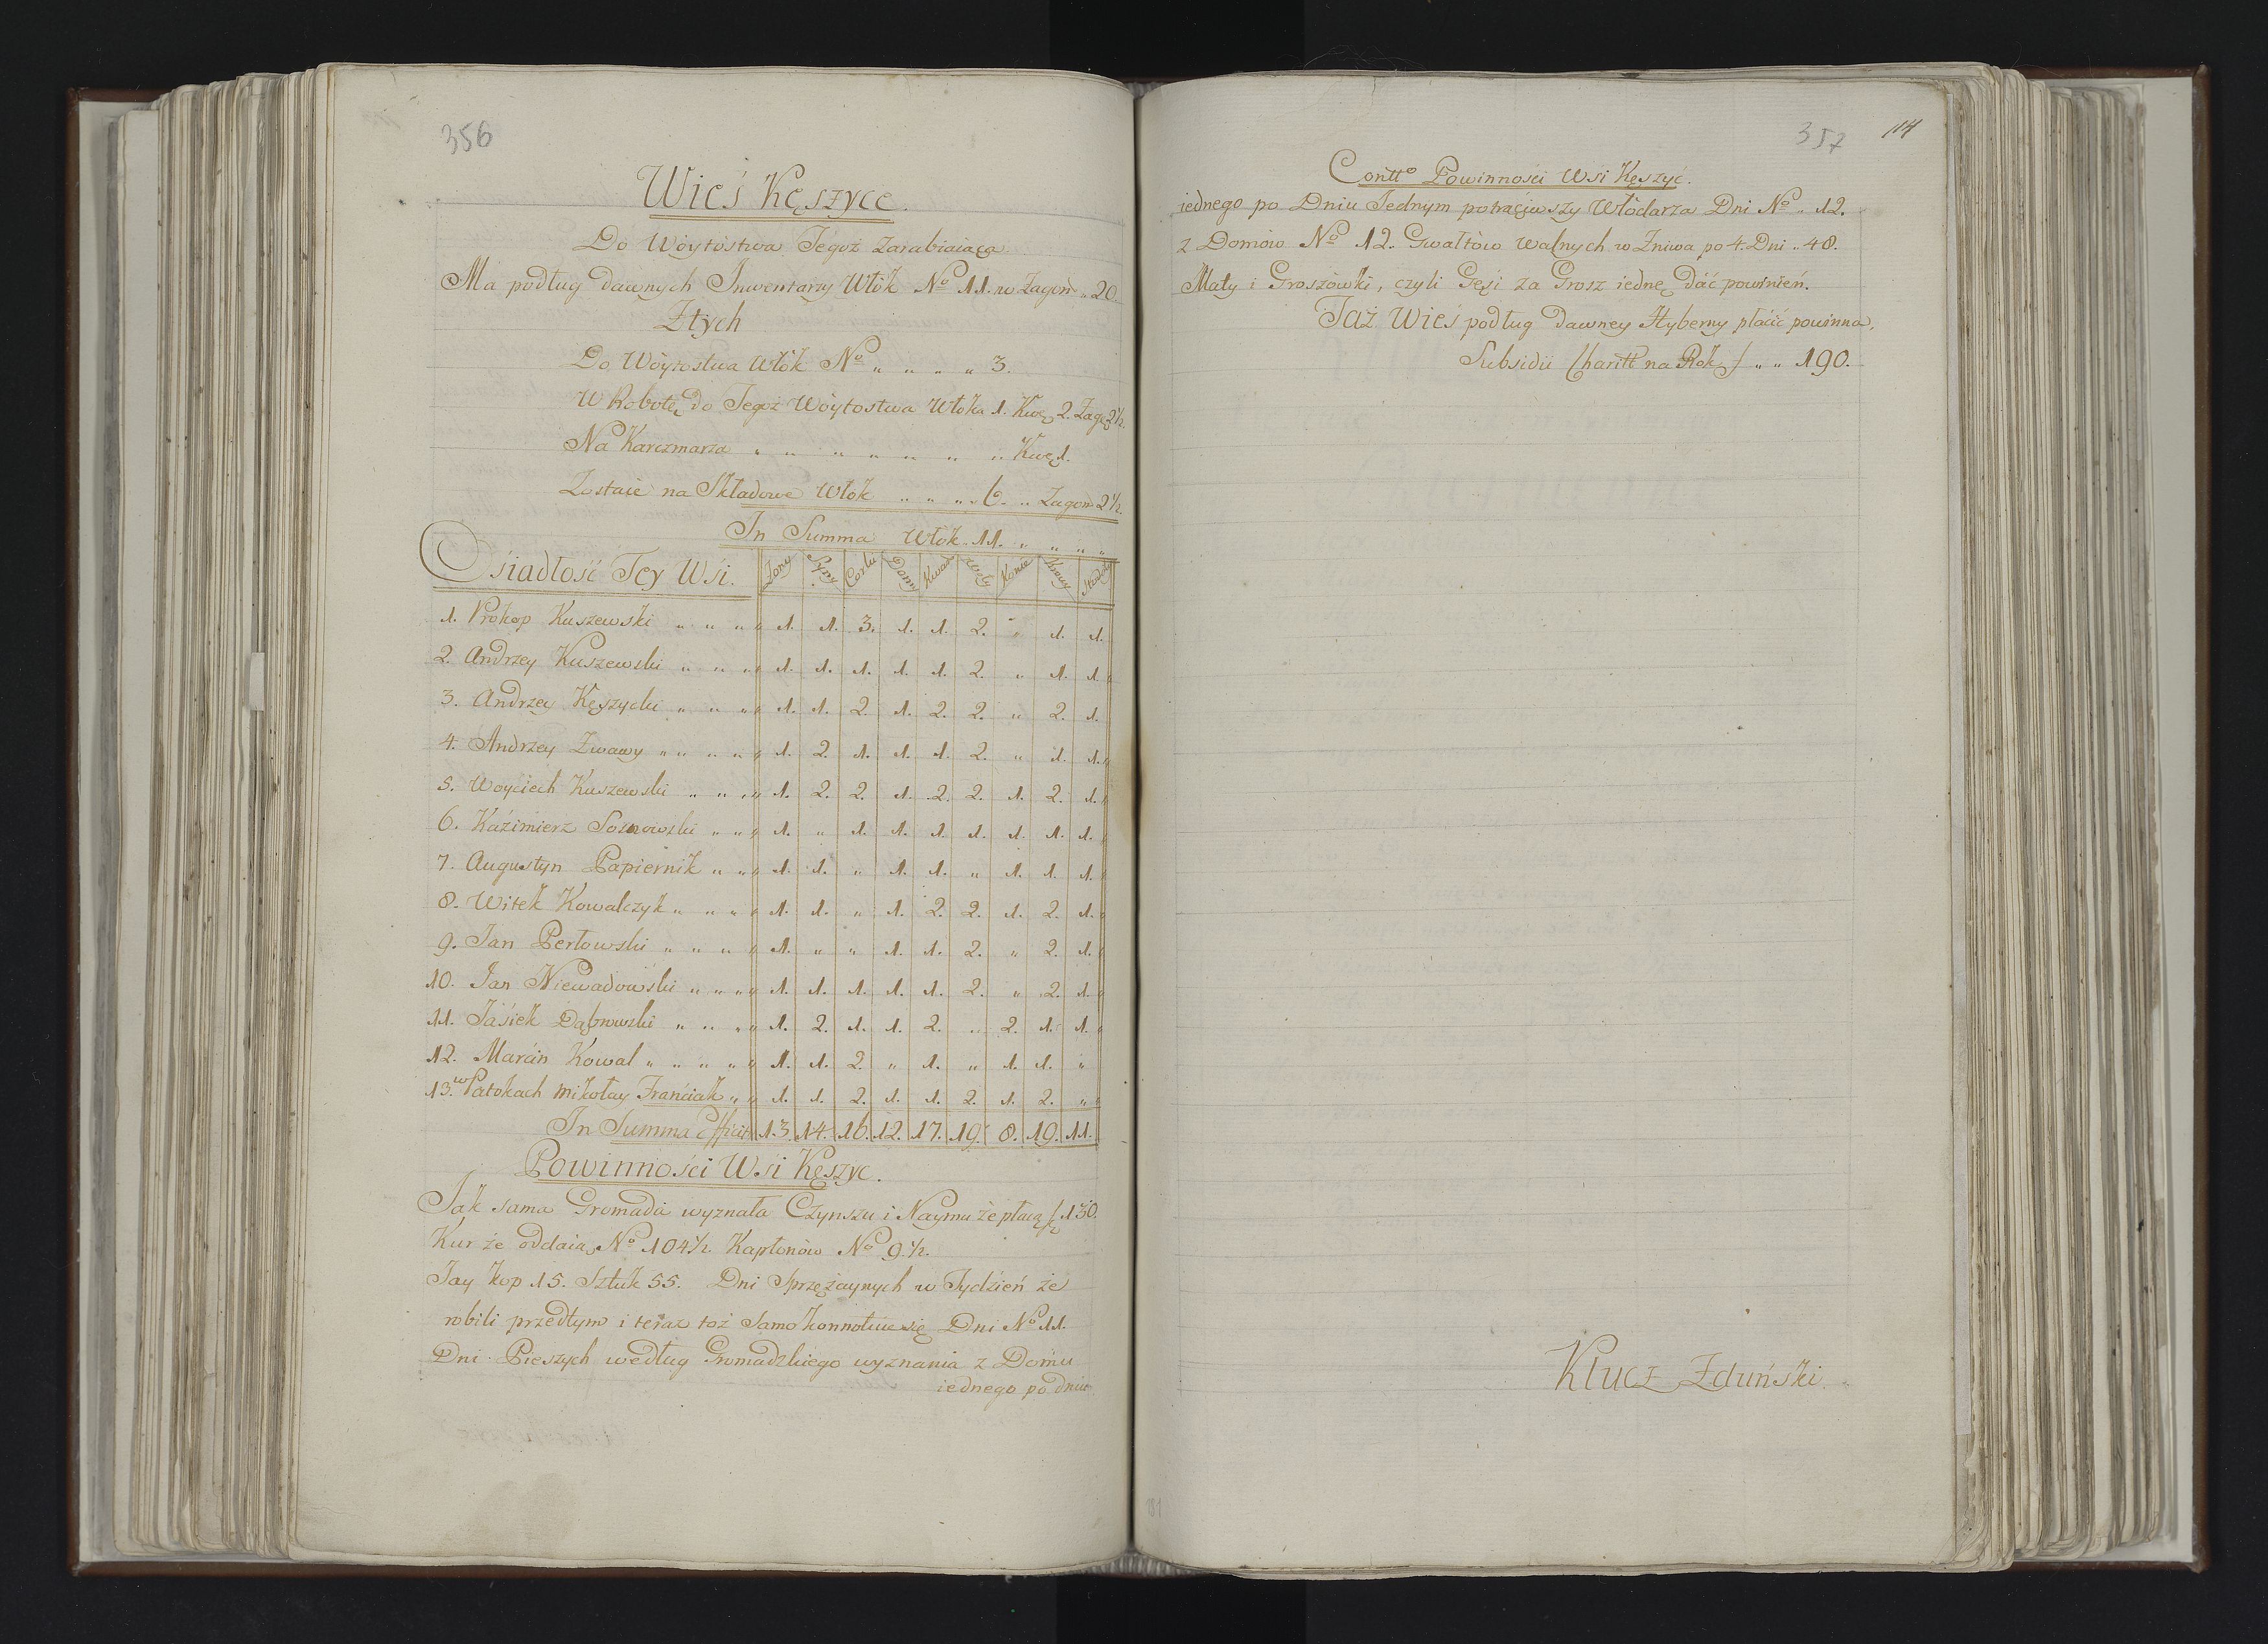 356
Wieś Kęszyce.
Do Wóytostwa Tegoż Zarabiaiąca
Ma podług dawnych Inwentarzy Włók No 11. w Zagon „ 20.
Z tych
Do Wóytostwa Włók No „ „ „ „ 3.
W Robotę do Tegoż Wóytostwa Włóka 1. Kwę 2. Zag 2 1/2.
Na Karczmarza „ „ „ „ „ „ „ Kwę 1.
Zostaie na Składowe Włók „ „ „ „ 6. „ Zagon 2 1/2.
In Summa Włók 11. „ „ „ „
Osiadłość Tey Wsi. Zony Syny Corki Domy Kwad Woły Konie Krowy
1. Prokop Kuszewski „ „ „ „ 1. 1. 3. 1. 1. 2. „ 1. 1.
2. Andrzey Kuszewski „ „ „ „ 1. 1. 1. 1. 1. 2. „ 1. 1.
3. Andrzey Kęszycki „ „ „ „ 1. 1. 2. 1. 2. 2. „ 2. 1.
4. Andrzey Zwawy „ „ „ „ „ 1. 2. 1. 1. 1. 2. „ 1. 1.
5. Woyciech Kuszewski „ „ „ „ 1. 2. 2. 1. 2. 2. 1. 2. 1.
6. Kaźimierz Sosnowski „ „ „ 1. „ 1. 1. 1. 1. 1. 1. 1.
7. Augustyn Papiernik „ „ „ 1. 1. „ 1. 1. „ 1. 1. 1.
8. Witek Kowalczyk „ „ „ „ 1. 1. „ 1. 2. 2. 1. 2. 1.
9. Jan Perłowski „ „ „ „ 1. „ „ 1. 1. 2. „ 2. 1.
10. Jan Niewadowski „ „ „ „ 1. 1. 1. 1. 1. 2. „ 2. 1.
11. Jásiek Dąbrowski „ „ „ „ 1. 2. 1. 1. 2. „ 2. 1. 1.
12. Marcin Kowal „ „ „ „ „ 1. 1. 2. „ 1. „ 1. 1. „
13. w Patokach Mikołay Franciak „ „ 1. 1. 2. 1. 1. 2. 1. 2. „
In Summa Efficit 13. 14. 16. 12. 17. 19. 8. 19. 11.
Powinności Wsi Kęszyc.
Jak sama Gromada wyznała Czynszu i Naymu że płacą 130.
Kur że oddaią No 104 1/2. Kapłonów No 9 1/2.
Jay kop 15. Sztuk 55. Dni Sprzężaynych w Tydzień że
robili przedtym i teraz toż samo konnotuie się Dni No 11.
Dni Pieszych według Gromadzkiego wyznania z Domu
iednego po dniu
357
114
Contto Powinności Wsi Kęszyc.
iednego po Dniu Jednym potrąciwszy Włodarza Dni No „ 12.
z Domów No 12. Gwałtów walnych w Zniwa po 4. Dni „ 48.
Mały i Groszówki, czyli Gęsi za Grosz iednę dáć powinień.
Taż Wieś podług dawney Hyberny płácić powinna,
Subsidii Charitt na Rok f „ „ 190.
Klucz Zduński.